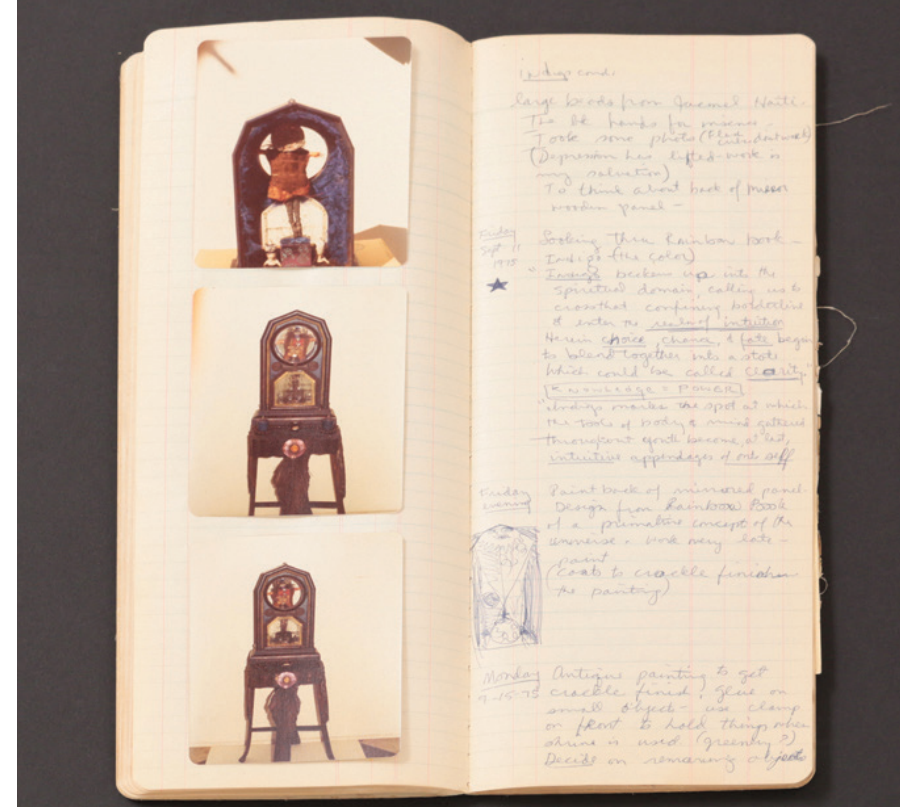 indigo cond.
large beads from Jacmel Haiti -
Tie bk hands for
Took some photo (Flea
(Depression has lifted - work is
my salvation)
To think about back of mirror
wooden panel -
Friday
Sept 11
1975
Looking thru Rainbow book -
Indigo (the color)
"Indigo beckons up into the
spiritual domain, calling us to
cross that confining borderline
& enter the realm of intuition
Herein choice, chance, & fate begin
to blend together into a state
which could be called clarity."
KNOWLEDGE = POWER
"Indigo marks the spot at which
the tools of body & mind gathered
throughout youth become, at last,
intuitive appendages of ones self
Friday
evening
Paint back of mirrored panel.
Design from Rainbow Book
of a primative concept of the
universe - work very late -
paint
(coats to crackle finish on
the painting)
Monday
9-15-75
Antique painting to get
crackle finish, glue on
small objects - use clamp
on front to hold things when
shrine is used (greenery?)
Decide on remaining objects